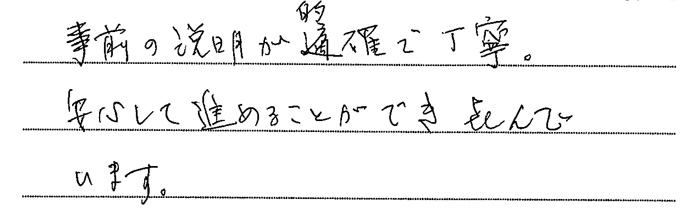 事前の説明が的確で丁寧。
安心して進めることができ喜んで
います。